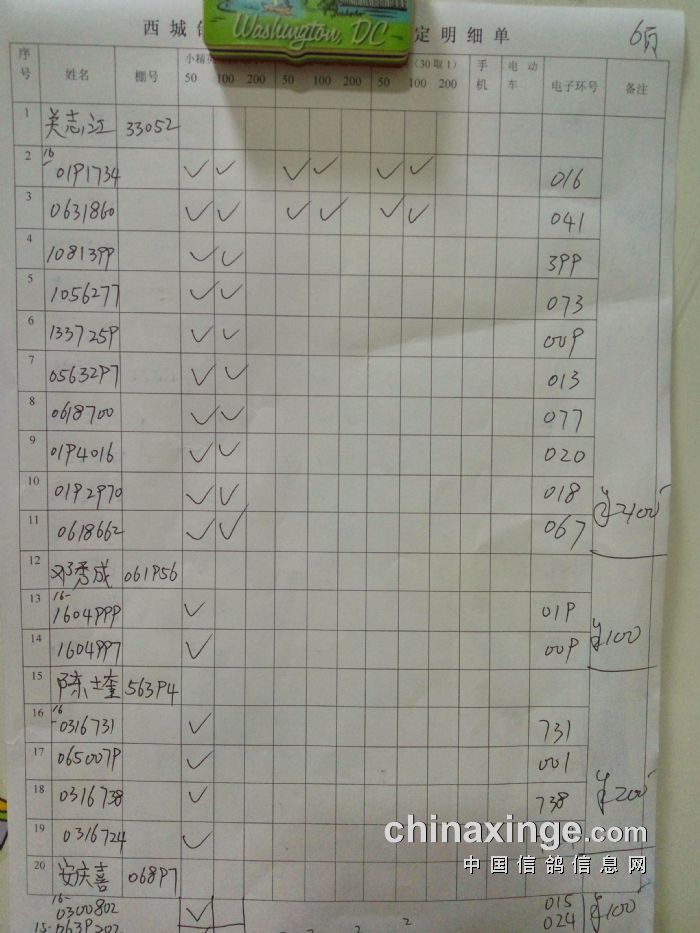 Washington, DC
西 城 定 明 细 单 6页
序号 姓名 棚号 小精英 (30取1) 手机 电动车 电子环号 备注
50 100 200 50 100 200 50 100 200
1 关志江 33052
2 16- 0191734 ✓ ✓ ✓ ✓ ✓ ✓ 016
3 0631860 ✓ ✓ ✓ ✓ ✓ ✓ 041
4 1081399 ✓ ✓ 399
5 1056277 ✓ ✓ 073
6 1337259 ✓ ✓ 009
7 0563297 ✓ ✓ 013
8 0618700 ✓ ✓ 077
9 0194016 ✓ ✓ 020
10 0192970 ✓ ✓ 018
11 0618662 ✓ ✓ 067 ¥2100
12 邓秀成 061956
13 16- 1604999 ✓ 019
14 1604997 ✓ 009 ¥100
15 陈士奎 56394
16 16- 0316731 ✓ 731
17 0650079 ✓ 001
18 0316738 ✓ 738 ¥200
19 0316724 ✓
20 安庆喜 06897
16- 0300802 ✓ 015
15- 0639202 024 ¥100
chinaxinge.com
中国信鸽信息网